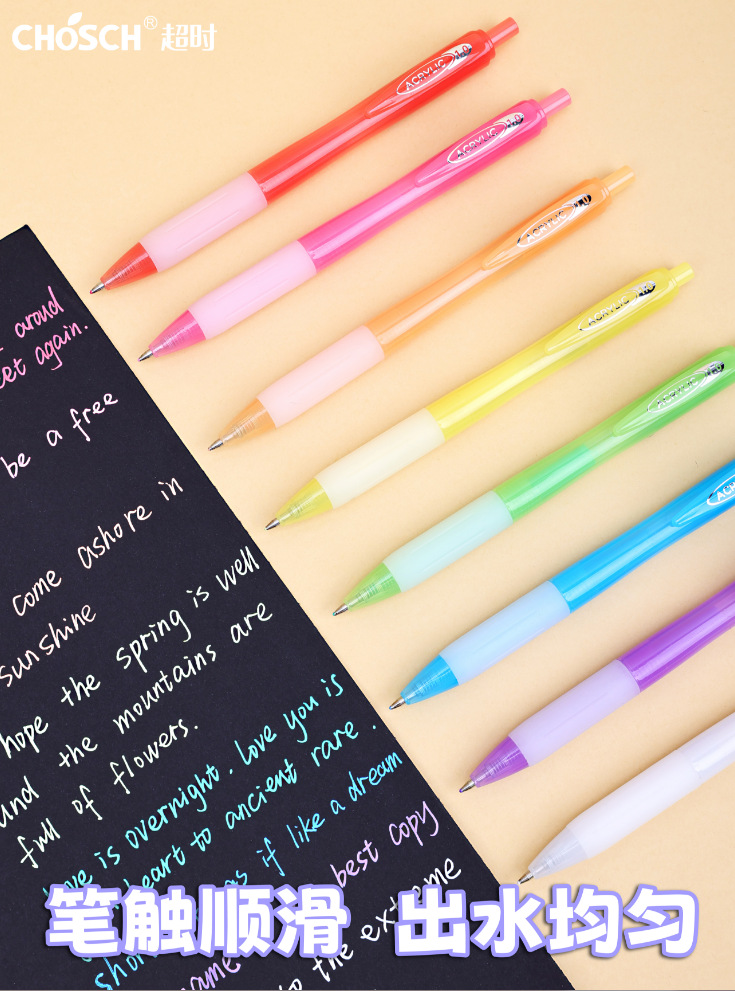 CHOSCH® 超时
ACRYLIC 1.0
ACRYLIC 1.0
ACRYLIC 1.0
ACRYLIC 1.0
ACRYLIC 1.0
aroud
eet again.
be a free
come ashore in
sunshine
hope the spring is well
und the mountains are
full of flowers.
is overnight. Love you is
heart to ancient rare.
as if like a dream
best copy
to the extreme
笔触顺滑 出水均匀